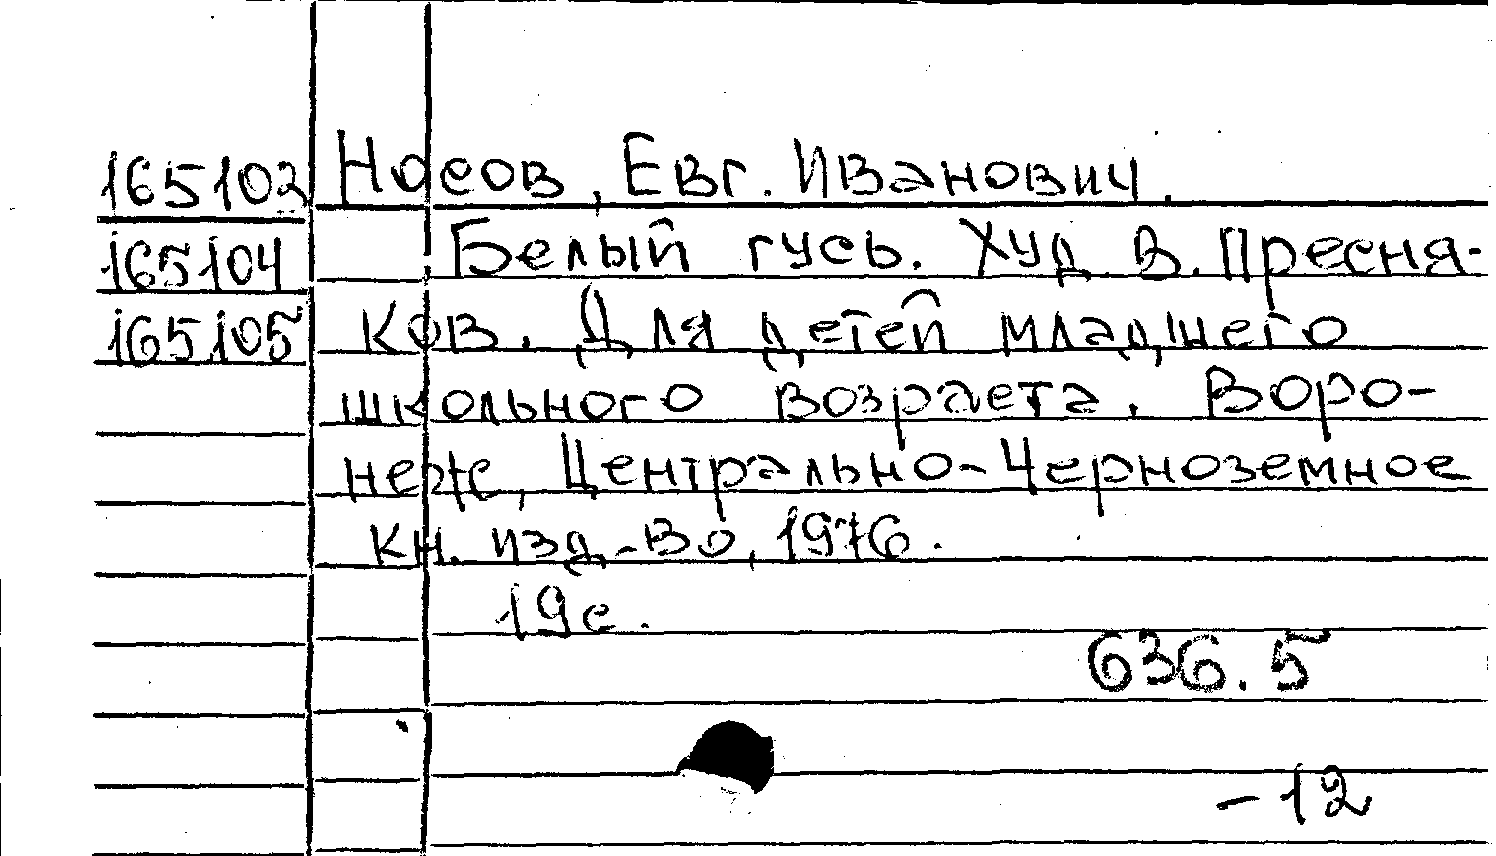 165102 Носов, Евг. Иванович.
165104 Белый гусь. Худ. В. Пресня-
165105 ков. Для детей младшего
школьного возраста. Воро-
неж, Центрально-Черноземное
кн. изд-во, 1976.
19с.
636.5
-12